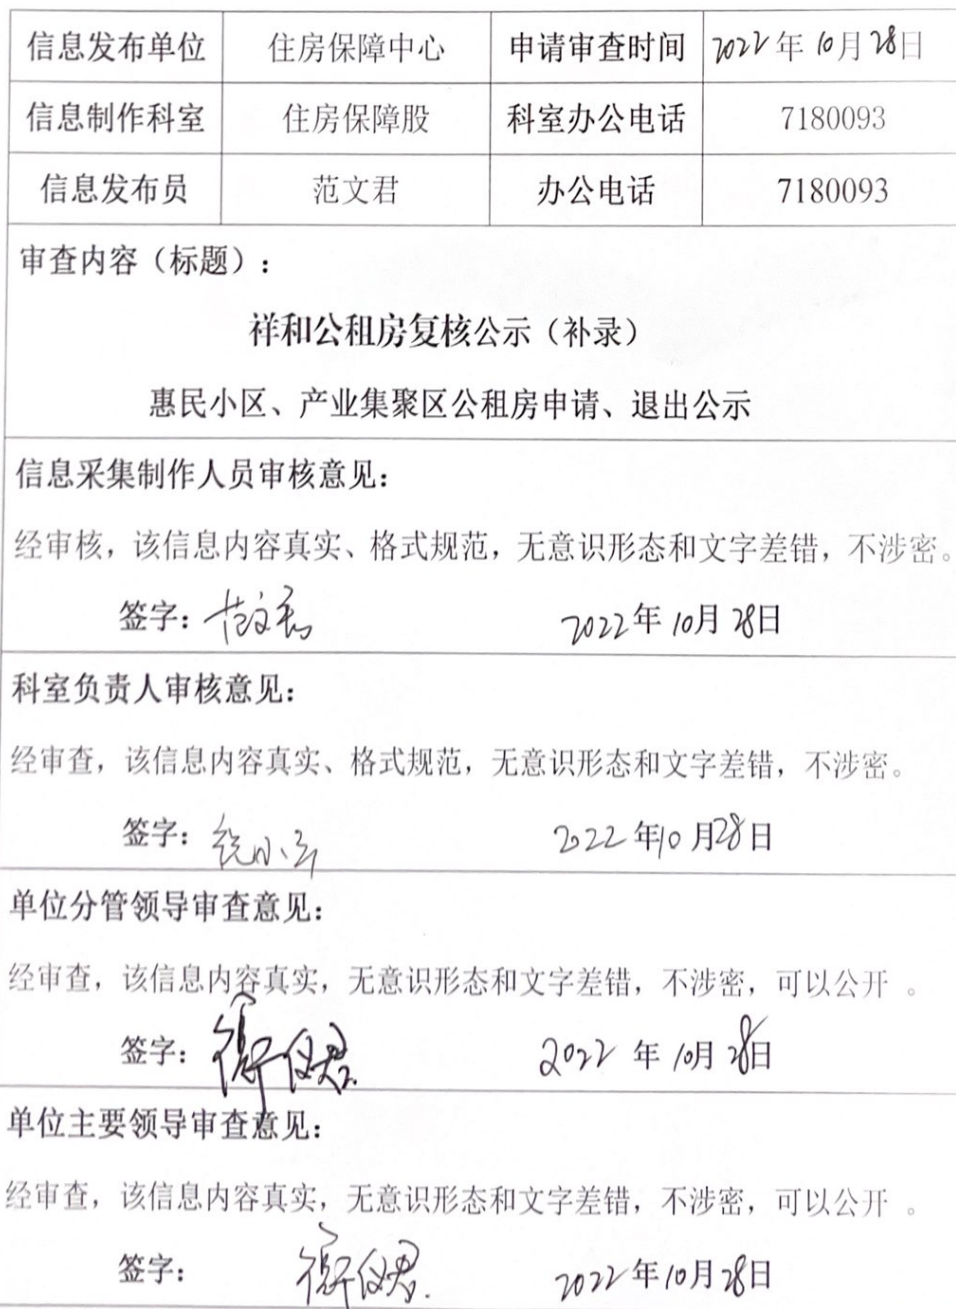 信息发布单位 住房保障中心 申请审查时间 2022年10月28日
信息制作科室 住房保障股 科室办公电话 7180093
信息发布员 范文君 办公电话 7180093
审查内容（标题）：
祥和公租房复核公示（补录）
惠民小区、产业集聚区公租房申请、退出公示
信息采集制作人员审核意见：
经审核，该信息内容真实、格式规范，无意识形态和文字差错，不涉密。
签字：范文君 2022年10月28日
科室负责人审核意见：
经审查，该信息内容真实、格式规范，无意识形态和文字差错，不涉密。
签字： 2022年10月28日
单位分管领导审查意见：
经审查，该信息内容真实，无意识形态和文字差错，不涉密，可以公开 。
签字： 2022年10月28日
单位主要领导审查意见：
经审查，该信息内容真实，无意识形态和文字差错，不涉密，可以公开 。
签字： 2022年10月28日